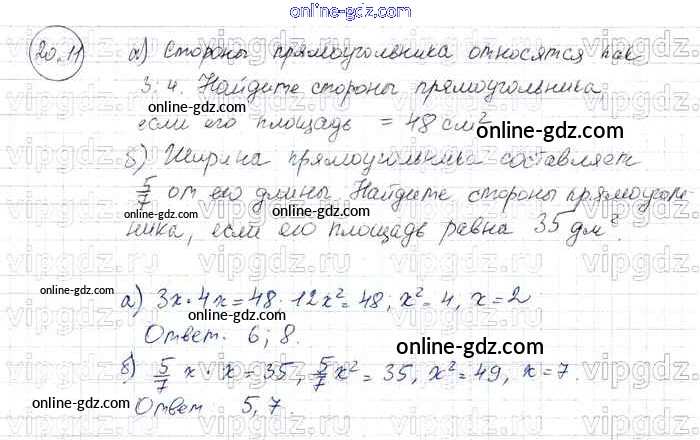 www.online-gdz.com
20.11 а) Стороны прямоугольника относятся как
3:4. Найдите стороны прямоугольника
online-gdz.com
если его площадь = 48 см²
online-gdz.com
б) Ширина прямоугольника составляет
5/7 от его длины. Найдите стороны прямоуголь
online-gdz.com
online-gdz.com
ника, если его площадь равна 35 дм².
vipgdz.com
online-gdz.com
online-gdz.com
а) 3x·4x=48 · 12x²=48; x²=4, x=2
Ответ. 6; 8.
online-gdz.com
б) 5/7 x·x=35, 5/7x²=35, x²=49, x=7.
online-gdz.com
online-gdz.com
Ответ 5,7.